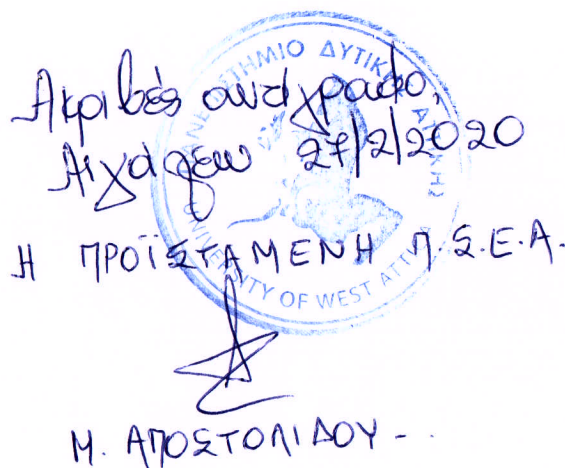 Ακριβές αντίγραφο,
Αιγάλεω 27/2/2020
Η ΠΡΟΪΣΤΑΜΕΝΗ Π.Σ.Ε.Α.
Μ. ΑΠΟΣΤΟΛΙΔΟΥ -.
ΠΑΝΕΠΙΣΤΗΜΙΟ ΔΥΤΙΚΗΣ ΑΤΤΙΚΗΣ
UNIVERSITY OF WEST ATTICA